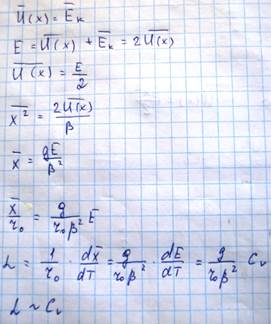 Ū(x) = Ēₖ
E = Ū(x) + Ēₖ = 2Ū(x)
Ū(x) = E/2
x̄² = 2Ū(x)/β
x̄ = gĒ/β²
x̄/r₀ = g/(r₀β²) Ē
α = 1/r₀ · dx̄/dT = g/(r₀β²) · dĒ/dT = g/(r₀β²) Cᵥ
α ~ Cᵥ